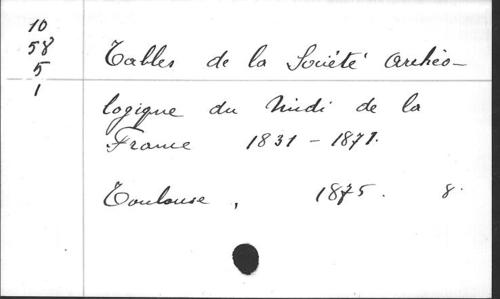 10
58
5
1
Tables de la Société Archéo-
logique du Midi de la
France 1831 - 1871.
Toulouse, 1875. 8.